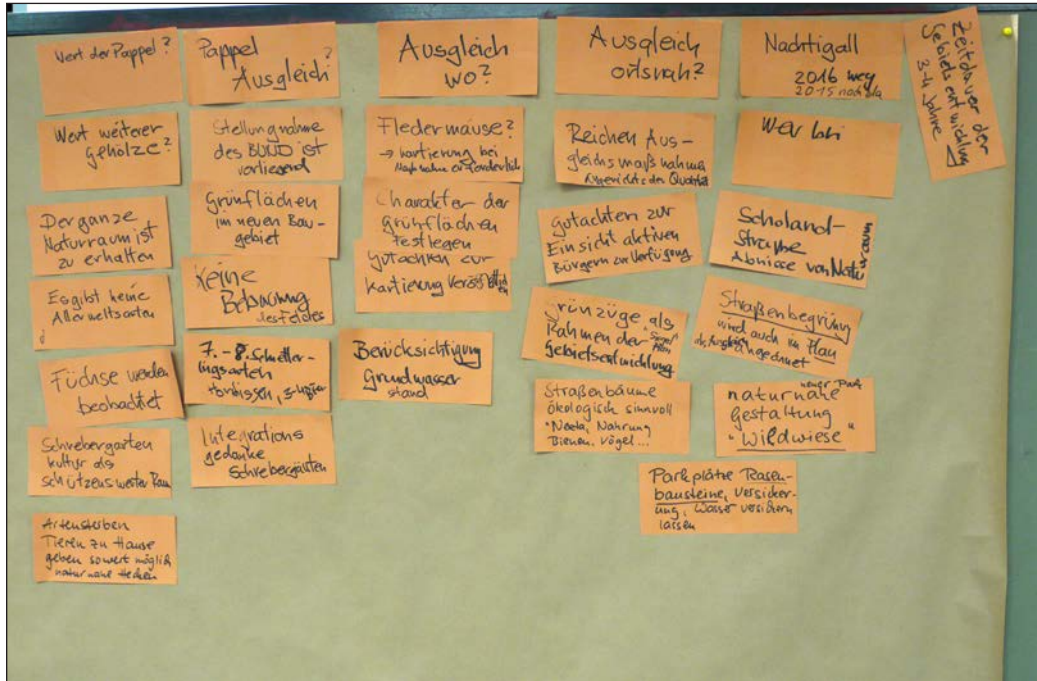 Wert der Pappel?
Wert weiterer
Gehölze?
Der ganze
Naturraum ist
zu erhalten
Es gibt keine
Allerweltsarten
!
Füchse werden
beobachtet
Schrebergarten
kultur als
schützenswerter Raum
Artensterben
Tieren zu Hause
geben soweit möglich
naturnahe Hecken
Pappel
Ausgleich?
Stellungnahme
des BUND ist
vorliegend
Grünflächen
im neuen Bau-
gebiet
Keine
Bebauung
des Feldes
7.-8. Schmetter-
lingsarten
Integrations
gedanke
Schrebergärten
Ausgleich
wo?
Fledermäuse?
→ Kartierung bei
erforderlich
Charakter der
Grünflächen
festlegen
Gutachten zur
Kartierung
Berücksichtigung
Grundwasser
stand
Ausgleich
ortsnah?
Reichen Aus-
gleichsmaßnahmen
Angesichts der Qualität
Gutachten zur
Einsicht aktiven
Bürgern zur Verfügung
Grünzüge als
Rahmen der
Gebietsentwicklung
Straßenbäume
ökologisch sinnvoll
Nahrung
Bienen, Vögel...
Parkplätze Rasen-
bausteine, Versicker-
ung, Wasser versickern
lassen
Nachtigall
2016 weg
2015 noch da
Wer
Scholand-
Straße
Abrisse von
Straßenbegrünung
wird auch im Plan
angeordnet
neuer Park
naturnahe
Gestaltung
"Wildwiese"
Zeitdauer der
Gebietsentwicklung
3-4 Jahre